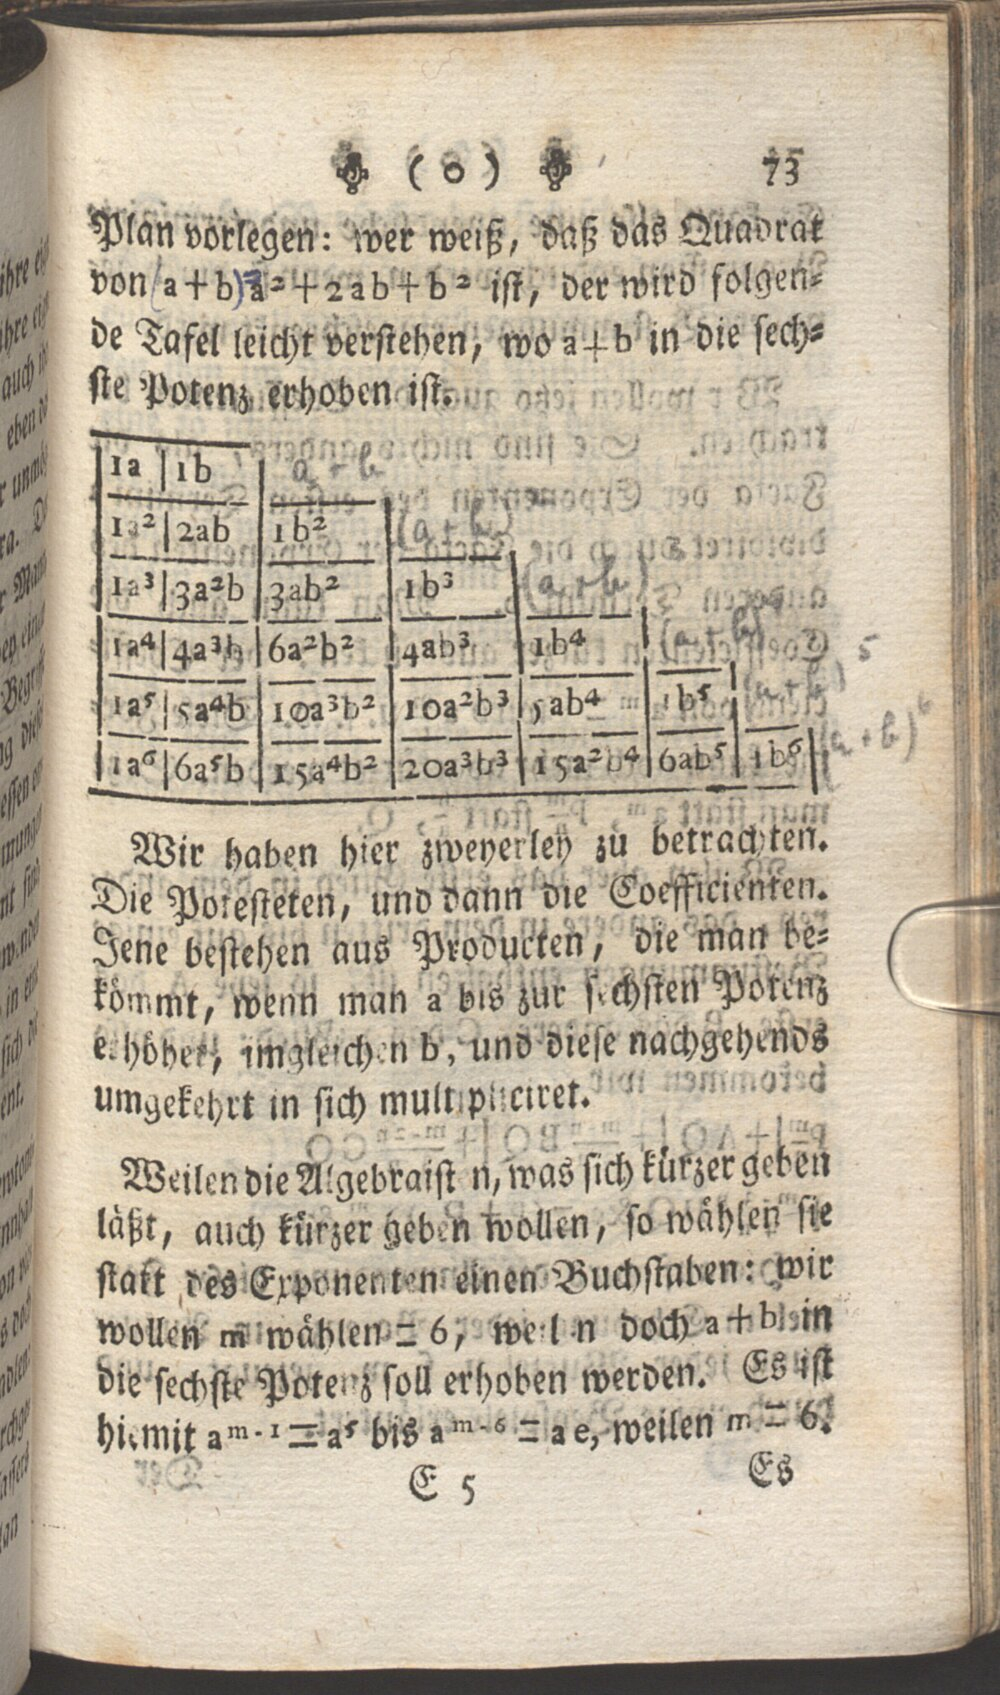 ( o ) 73
Plan vorlegen: wer weiß, daß das Quadrat
von (a + b)² a² + 2ab + b² ist, der wird folgen-
de Tafel leicht verstehen, wo a + b in die sech-
ste Potenz erhoben ist.
1a | 1b | a + b
1a² | 2ab | 1b² | (a + b)
1a³ | 3a²b | 3ab² | 1b³ | (a + b)
1a⁴ | 4a³b | 6a²b² | 4ab³ | 1b⁴ | (a + b)
1a⁵ | 5a⁴b | 10a³b² | 10a²b³ | 5ab⁴ | 1b⁵ | (a + b)⁵
1a⁶ | 6a⁵b | 15a⁴b² | 20a³b³ | 15a²b⁴ | 6ab⁵ | 1b⁶ | (a + b)⁶
Wir haben hier zweyerley zu betrachten.
Die Potesteten, und dann die Coefficienten.
Jene bestehen aus Producten, die man be-
kömmt, wenn man a bis zur sechsten Potenz
erhöhet, imgleichen b, und diese nachgehends
umgekehrt in sich multipliciret.
Weilen die Algebraisten, was sich kürzer geben
läßt, auch kürzer geben wollen, so wählen sie
statt des Exponenten einen Buchstaben: wir
wollen m wählen = 6, weilen doch a + b in
die sechste Potenz soll erhoben werden. Es ist
hiemit aᵐ⁻¹ = a⁵ bis aᵐ⁻⁶ = a e, weilen m = 6.
E 5 Es